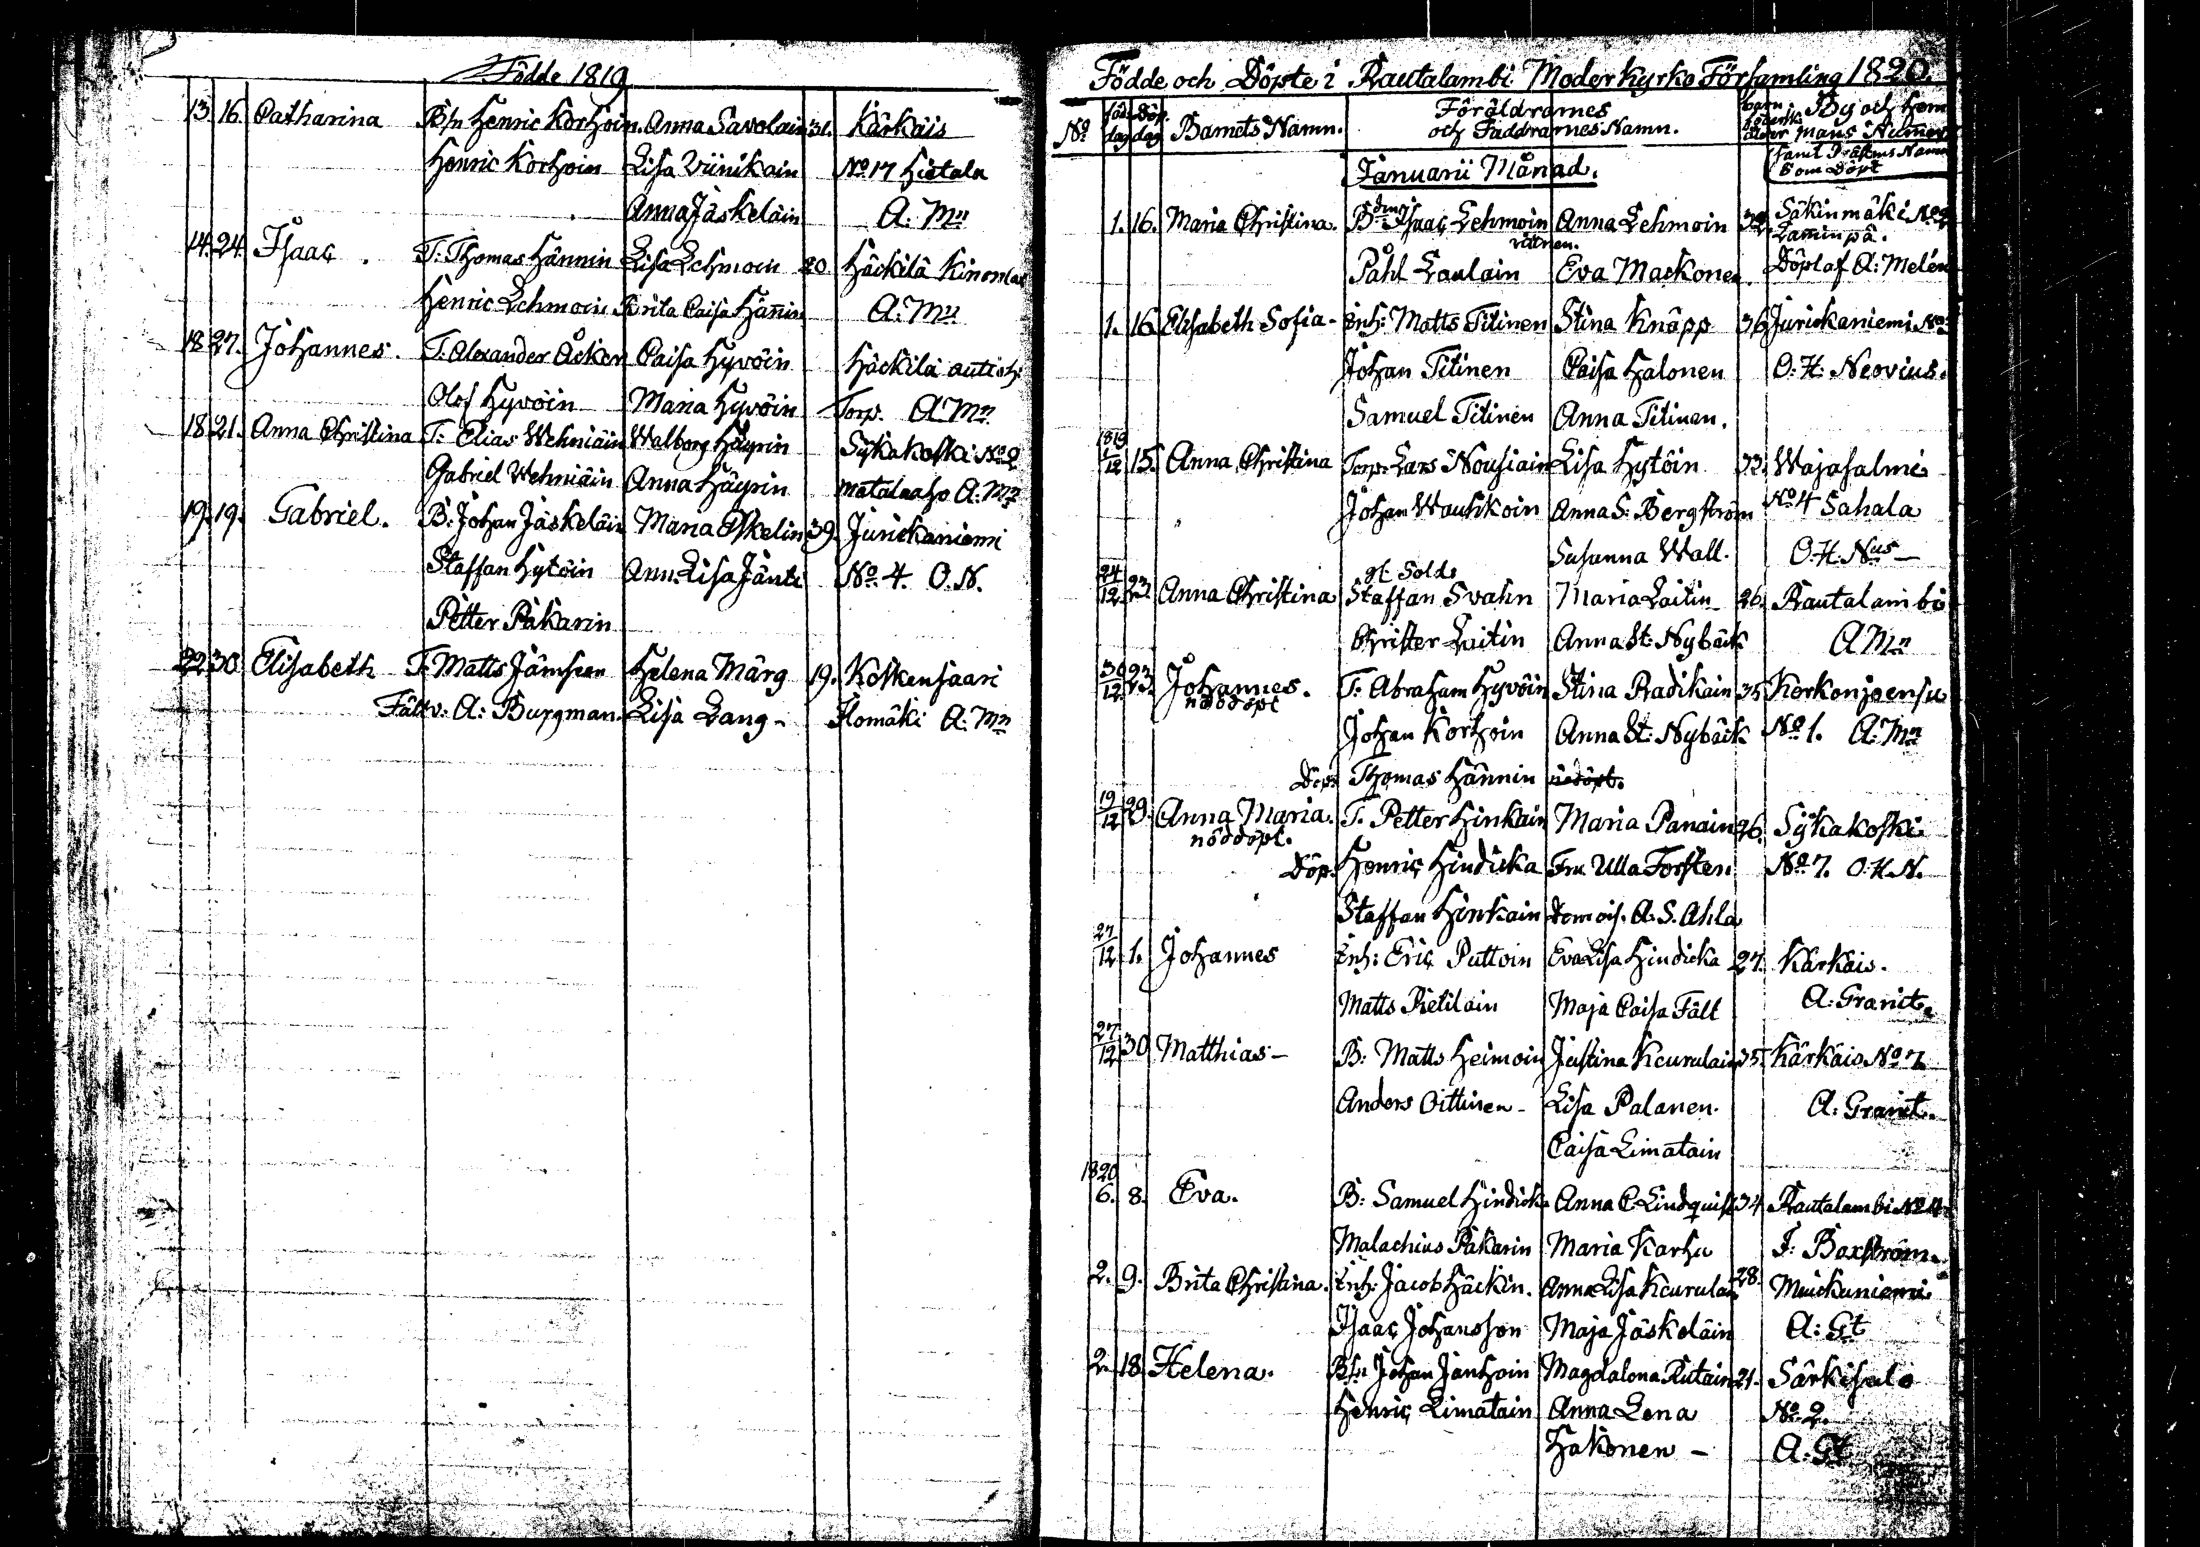 Födde 1819
13 16. Catharina B/n Henric Korhoin. Anna Savolain 31. Kärkäis
Henric Korhoin Lisa Viinikain No 17 Hietala
Anna Jäskeläin A: Mn
14. 24. Isaac. T: Thomas Hännin Lisa Lehmoin 20 Häckilä
Henric Lehmoin Brita Caisa Hänin A: Mn
18 27. Johannes. T. Alexander Åcker Caisa Hyvöin Häckilä
Olof Hyvöin Maria Hyvöin Torp. A Mn
18 21. Anna Christina T: Elias Wehniäin Walborg Häyrin Sykäkoski No 2
Gabriel Wehniäin Anna Häyrin matalaaho A: Mn
19. 19. Gabriel. B: Johan Jäskeläin Maria Eskelin 39. Jurickaniemi
Staffan Hytöin Anna Lisa Jänti No 4. O. N.
Petter Pakarin
22 30 Elisabeth T: Matts Jämsen Helena Märg 19. Koskensaari
Fältv: A: Burgman. Lisa Lang - Ilomäki A: Mn
Födde och Döpte i Rautalambi Moderkyrko Församling 1820.
No föd. dag Döp. dag Barnets Namn. Föräldrarnes och Faddrarnes Namn. By och Hemmans Numer
samt Prästens Namn som Döpt
Januarii Månad.
1. 16. Maria Christina. B: Isaac Lehmoin Anna Lehmoin 32 Säkinmäki No 2
Laminpä.
Påhl Laulain Eva Mackonen. Döpt af A: Melén
1. 16 Elisabeth Sofia - Inh: Matts Titinen Stina Knäpp 36 Jurickaniemi No
Johan Titinen Caisa Halonen O: H: Neovius.
Samuel Titinen Anna Titinen.
1819
/12 15. Anna Christina Torp. Lars Nousiain Lisa Hytöin 33. Wajasalmi
Johan Wauhkoin Anna S: Bergström No 4 Sahala
Susanna Wall. O. H. Nus -
gl. Sold.
24/12 23 Anna Christina Staffan Svahn Maria Laitin 26. Rautalambi
Christer Laitin Anna St: Nybäck A Mn
30/12 23. Johannes. T: Abraham Hyvöin Stina Radikain 35 Korkonjoensu
nöddöpt
Johan Korhoin Anna St: Nybäck No 1. A: Mn
Döp: Thomas Hännin
19/12 29. Anna Maria. T. Petter Hinkain Maria Panain 26. Sykäkoski
nöddöpt.
Döp. Henric Hindicka Fru Ulla Forsten No 7. O. H. N.
Staffan Hinkain Demois. A. S. Ahla
27/12 1. Johannes Inh: Eric Puttoin Eva Lisa Hindicka 27. Kärkäis.
Matts Pietilain Maja Caisa Fält A: Granit.
27/12 30 Matthias - B: Matts Heimoin Justina Keurulain 35. Kärkäis No 7
Anders Oittinen - Lisa Palanen. A: Granit.
Caisa Limatain
1820
6. 8. Eva. B: Samuel Hindick Anna C. Lindquist 34 Rautalambi No 4
Malachius Pakarin Maria Karhu J: Baxström.
2. 9. Brita Christina. Inh: Jacob Häckin. Anna Lisa Keurulain 28. Muickuniemi
Isaac Johansson Maja Jäskeläin A: Gt
2. 18 Helena. B/n Johan Janhoin Magdalena Rutain 21. Särkisalo
Henric Limatain Anna Lena No 2.
Hakonen - A: Gt